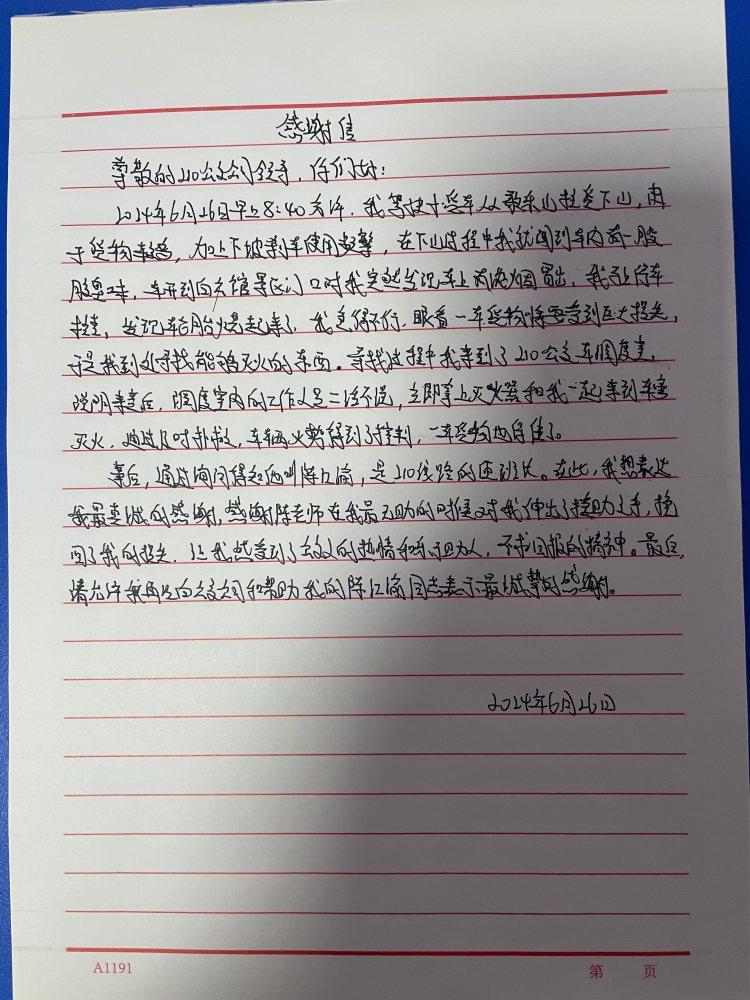 感谢信
尊敬的210公交公司领导，你们好：
2024年6月26日早上8:40左右，我驾驶中货车从歌乐山拉货下山，由
于货物较重，加上下坡刹车使用频繁，在下山过程中我就闻到车内有一股
股臭味，车开到白公馆景区门口时我突然发现车上有浓烟冒出，我马上停车
检查，发现轮胎燃烧起来了，我急得不行，眼看一车货物将要受到巨大损失，
于是我到处寻找能够灭火的东西。寻找过程中我来到了210公交车调度室，
说明来意后，调度室内的工作人员二话不说，立即拿上灭火器和我一起来到车旁
灭火，通过及时扑救，车辆火势得到了控制，一车货物也保住了。
事后，通过询问得知他叫陈江渝，是210线路的班长。在此，我想表达
我最真诚的感谢，感谢陈老师在我最无助的时候对我伸出了援助之手，挽
回了我的损失，让我感受到了公交人的热情和乐于助人，不求回报的精神。最后，
请允许我再次向公交公司和帮助我的陈江渝同志表示最诚挚的感谢。
2024年6月26日
A1191
第 页